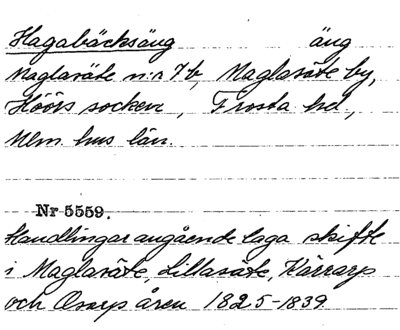 Hagabäcksäng äng
Maglasäte n:r 7b, Maglasäte by,
Höörs socken, Frosta hd,
Mlm. hus län.
Nr 5559.
Handlingar angående laga skifte
i Maglasäte, Lillasäte, Kärrarp
och Ososp åren 1825-1839